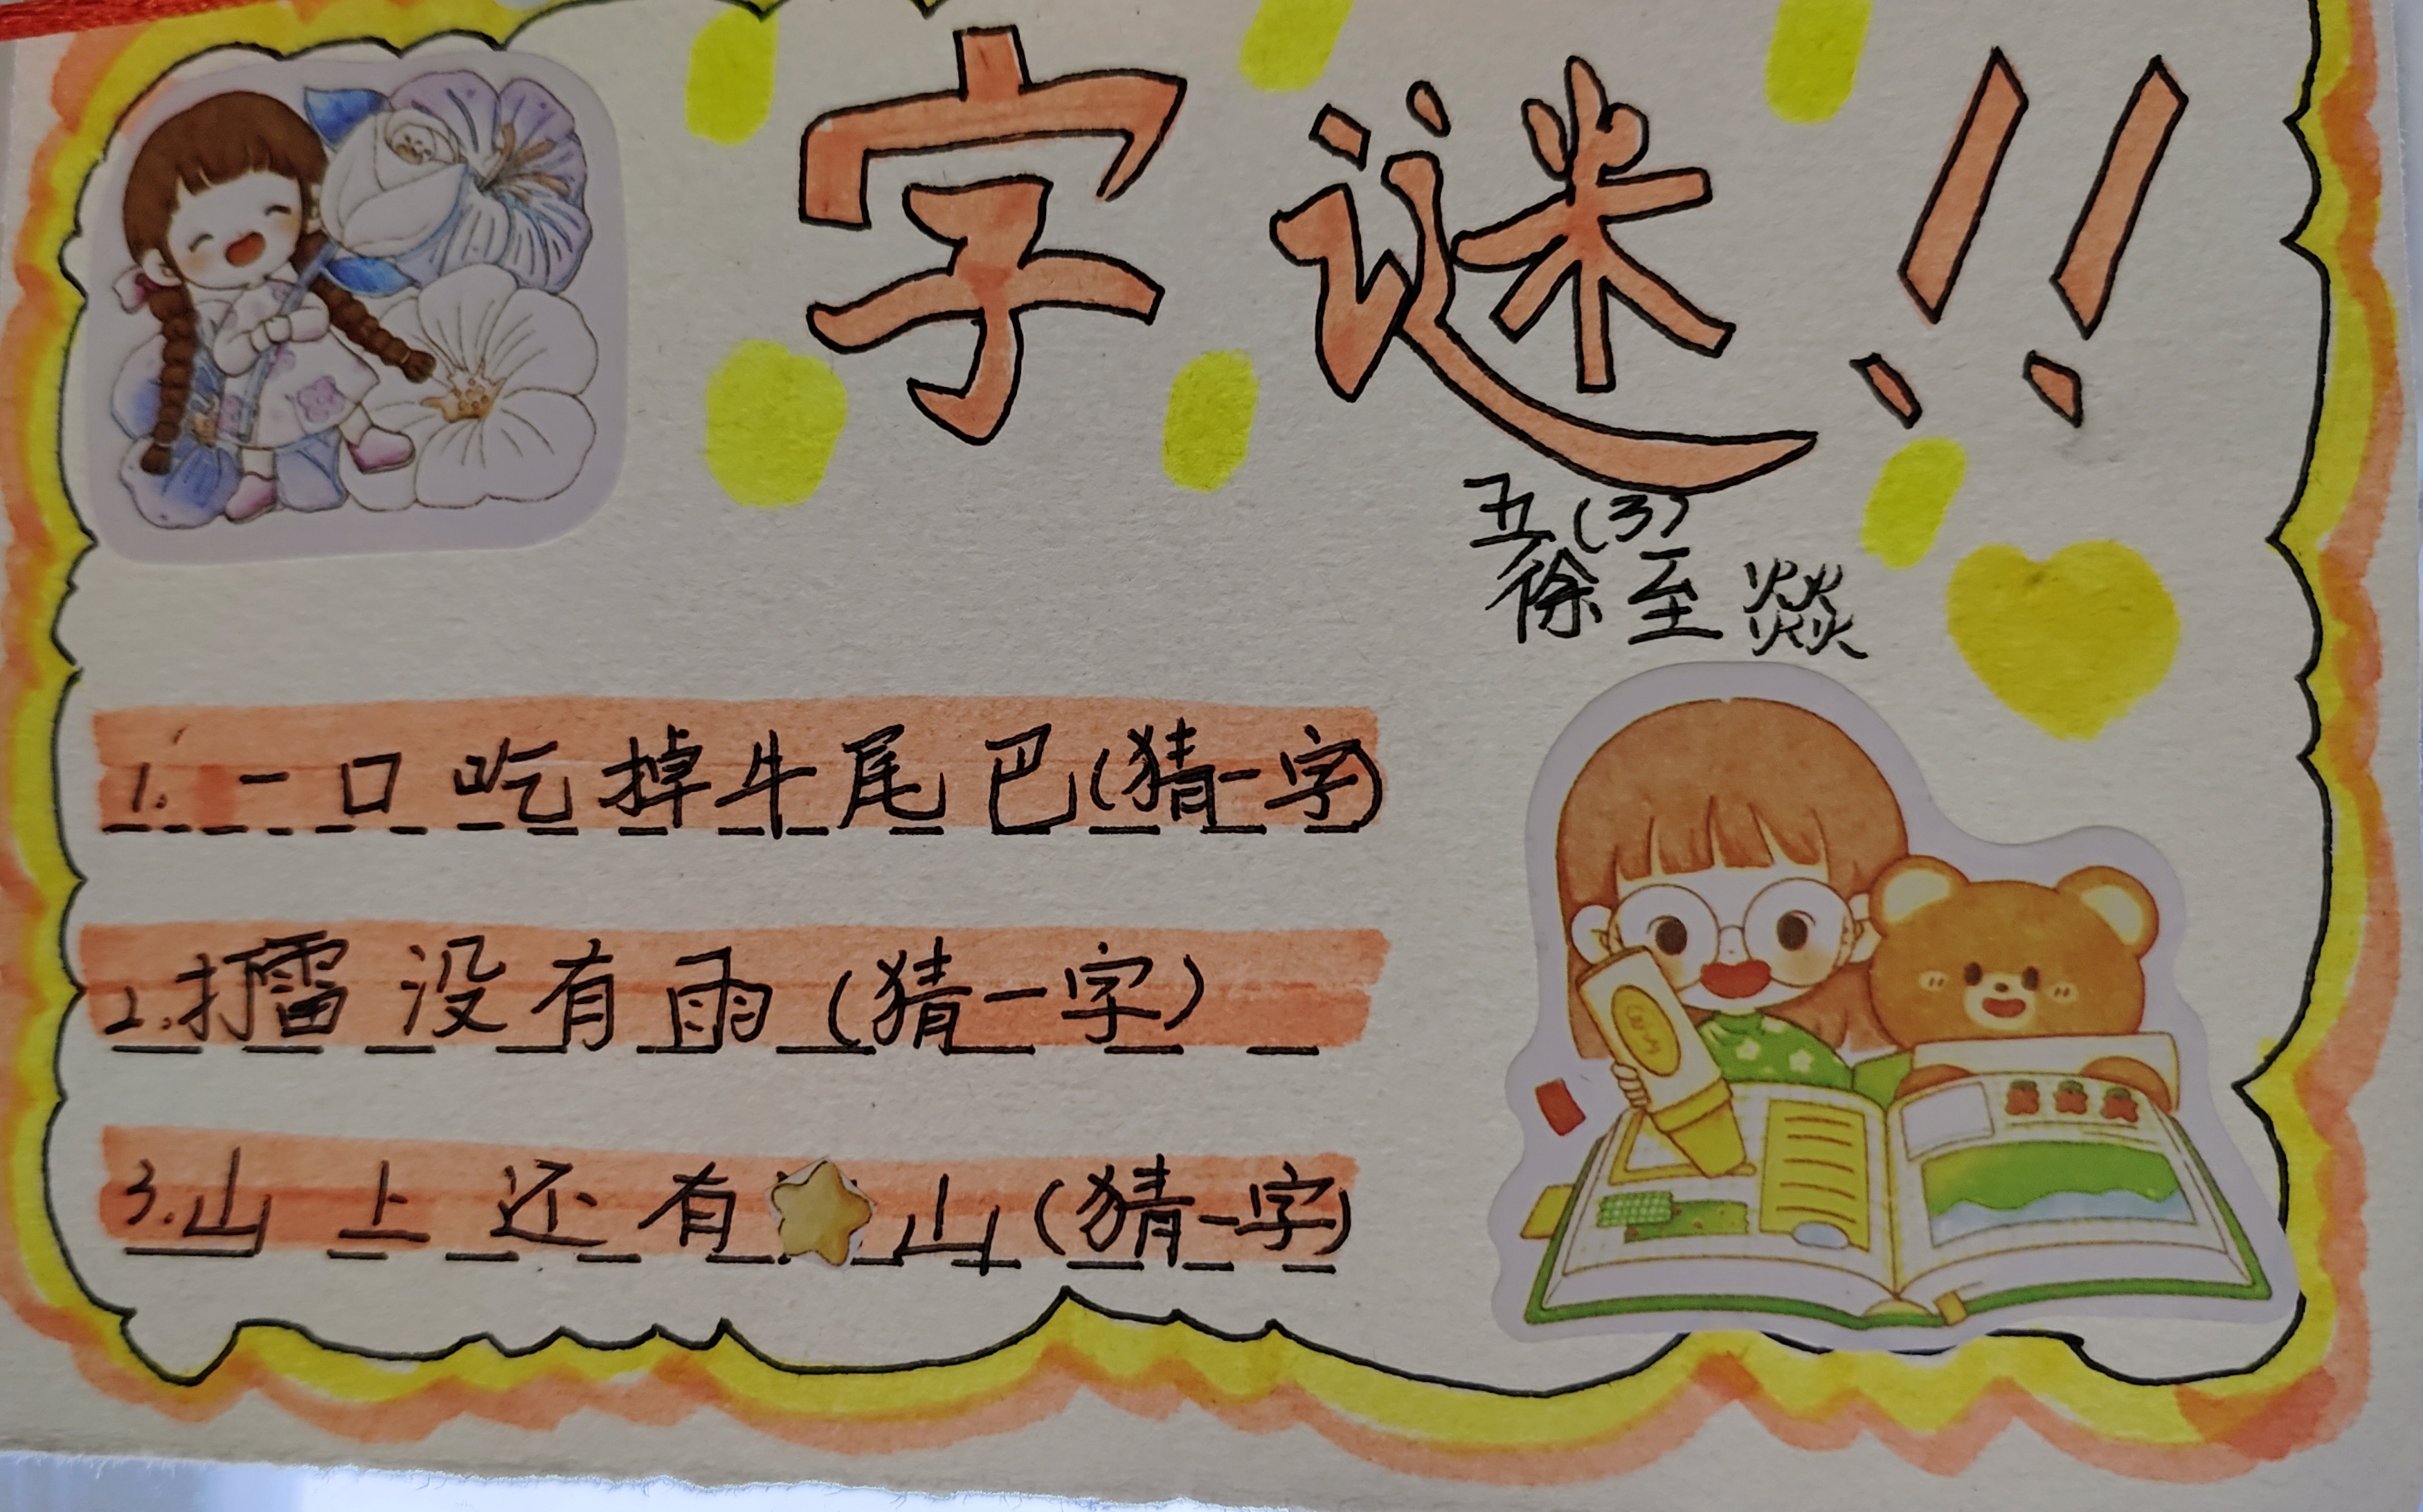 字谜!!
五(3)
徐至燚
1.一口吃掉牛尾巴(猜一字)
2.擂没有雨(猜一字)
3.山上还有山(猜一字)